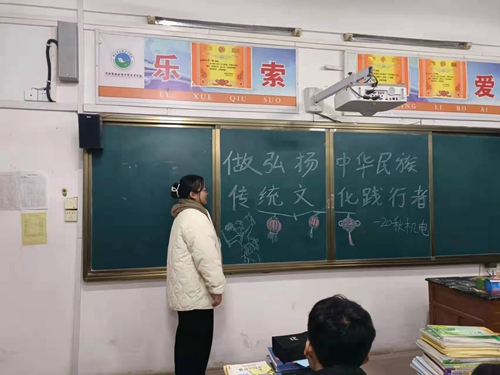 乐
索
爱
LE XUE QIU SUO
LI BO AI
做弘扬中华民族
传统文化践行者
—20秋机电